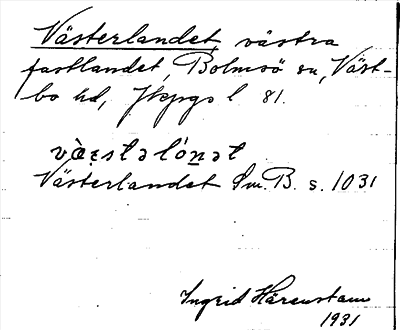 Västerlandet, västra
fastlandet, Bolmsö sn, Väst-
bo hd, Jkpgs l 81.
væ̀stəlónət
Västerlandet Sm.B. s. 1031
Ingrid Härenstam
1931